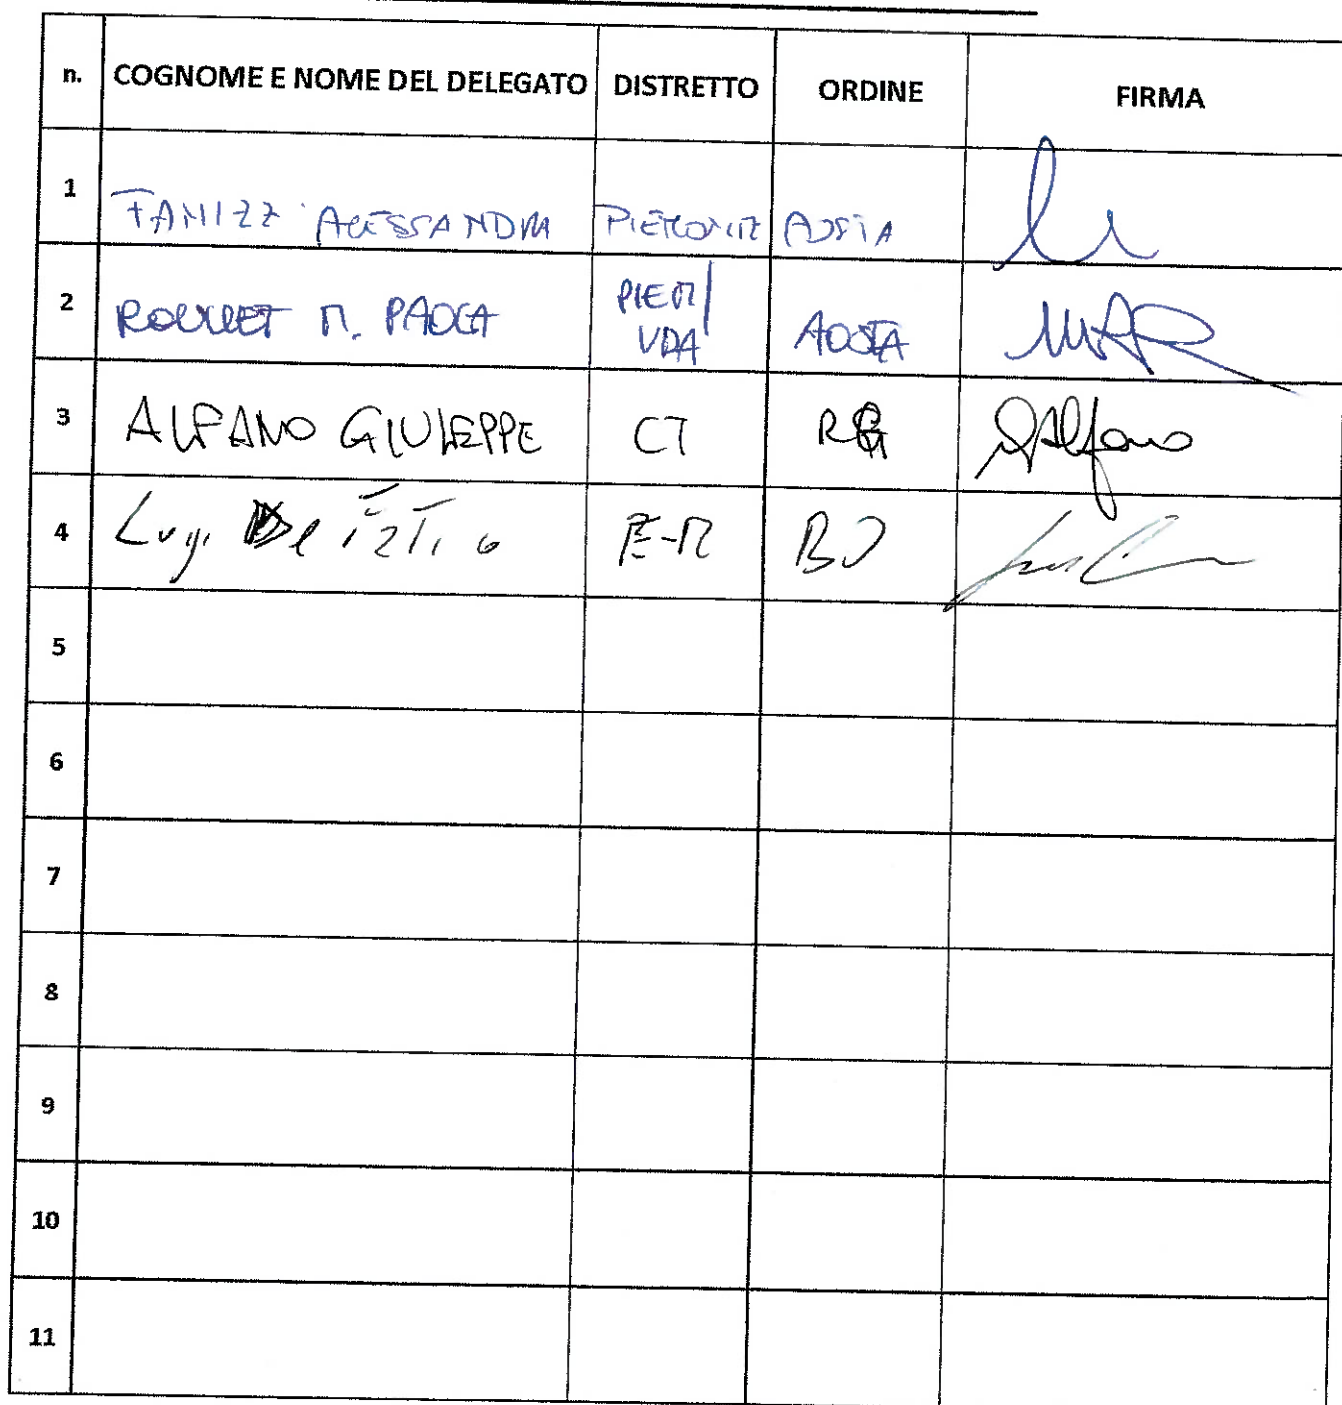 n. COGNOME E NOME DEL DELEGATO DISTRETTO ORDINE FIRMA
1 FANIZZI ALESSANDRA PIEMONTE AOSTA
2 ROULLET M. PAOLA PIEM/ VDA AOSTA
3 ALFANO GIUSEPPE CT RG Alfano
4 Luigi E-R BO
5
6
7
8
9
10
11